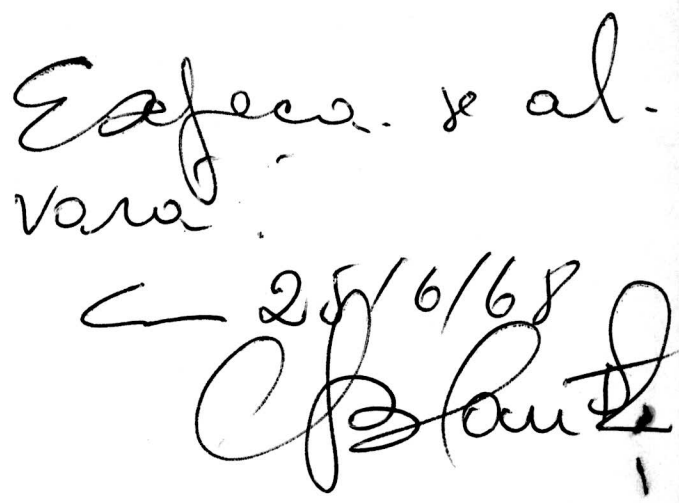 Expeça-se al-
vará.
25/6/68